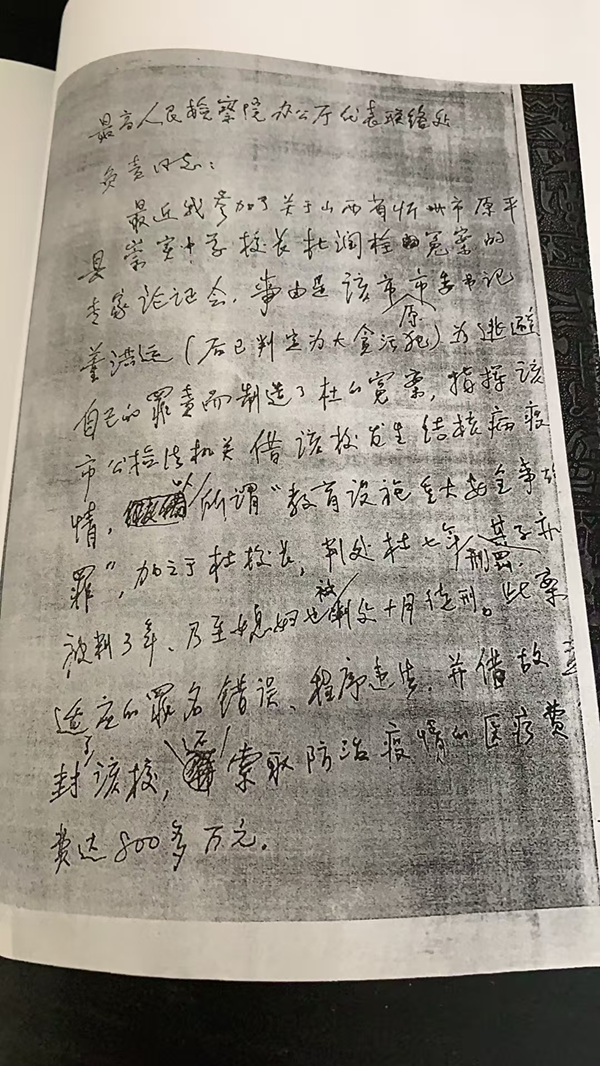 最高人民检察院办公厅代表联络处
负责同志：
最近我参加了关于山西省忻州市原平
县崇实中学校长杜润栓的冤案的
专家论证会，事由是该市原市委书记
董洪运（后已判定为大贪污犯）为逃避
自己的罪责而制造了杜的冤案，指挥该
市公检法机关借该校发生结核病疫
情，以所谓“教育设施重大安全事故
罪”，加之于杜校长，判处杜七年刑罚，其子亦
被判3年、乃至媳妇也被判处十月徒刑。此案
适应的罪名错误、程序违法，并借故查
封了该校，索取防治疫情的医疗费
费达800多万元。